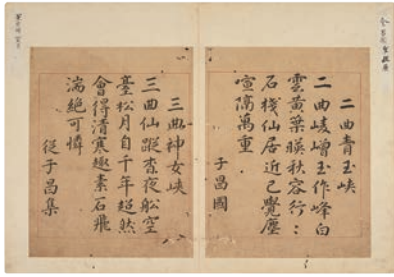 二曲青玉峽
二曲崚嶒玉作峰白
雲黃葉暎秋容行〻
石棧仙居近已覺塵
喧隔萬重
于昌國
三曲神女峽
三曲仙蹤杳夜船空
臺松月自千年超然
會得清寒趣素石飛
湍絶可憐
從子昌集